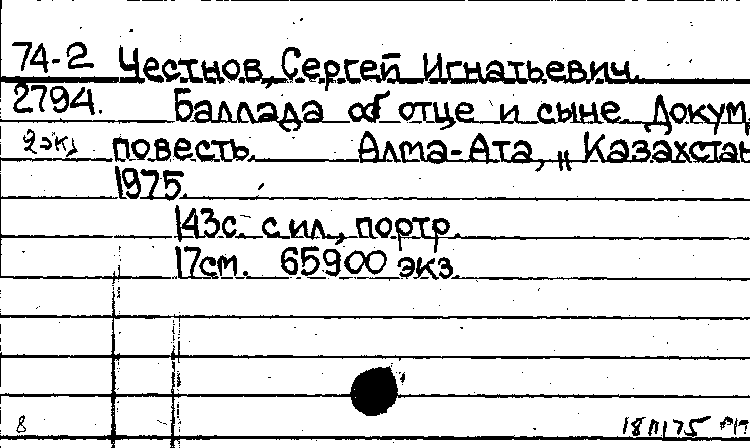 74-2 Честнов, Сергей Игнатьевич.
2794. Баллада об отце и сыне. Докум.
2 экз повесть. Алма-Ата, „Казахстан
1975.
143с. с ил., портр.
17см. 65900 экз.
8